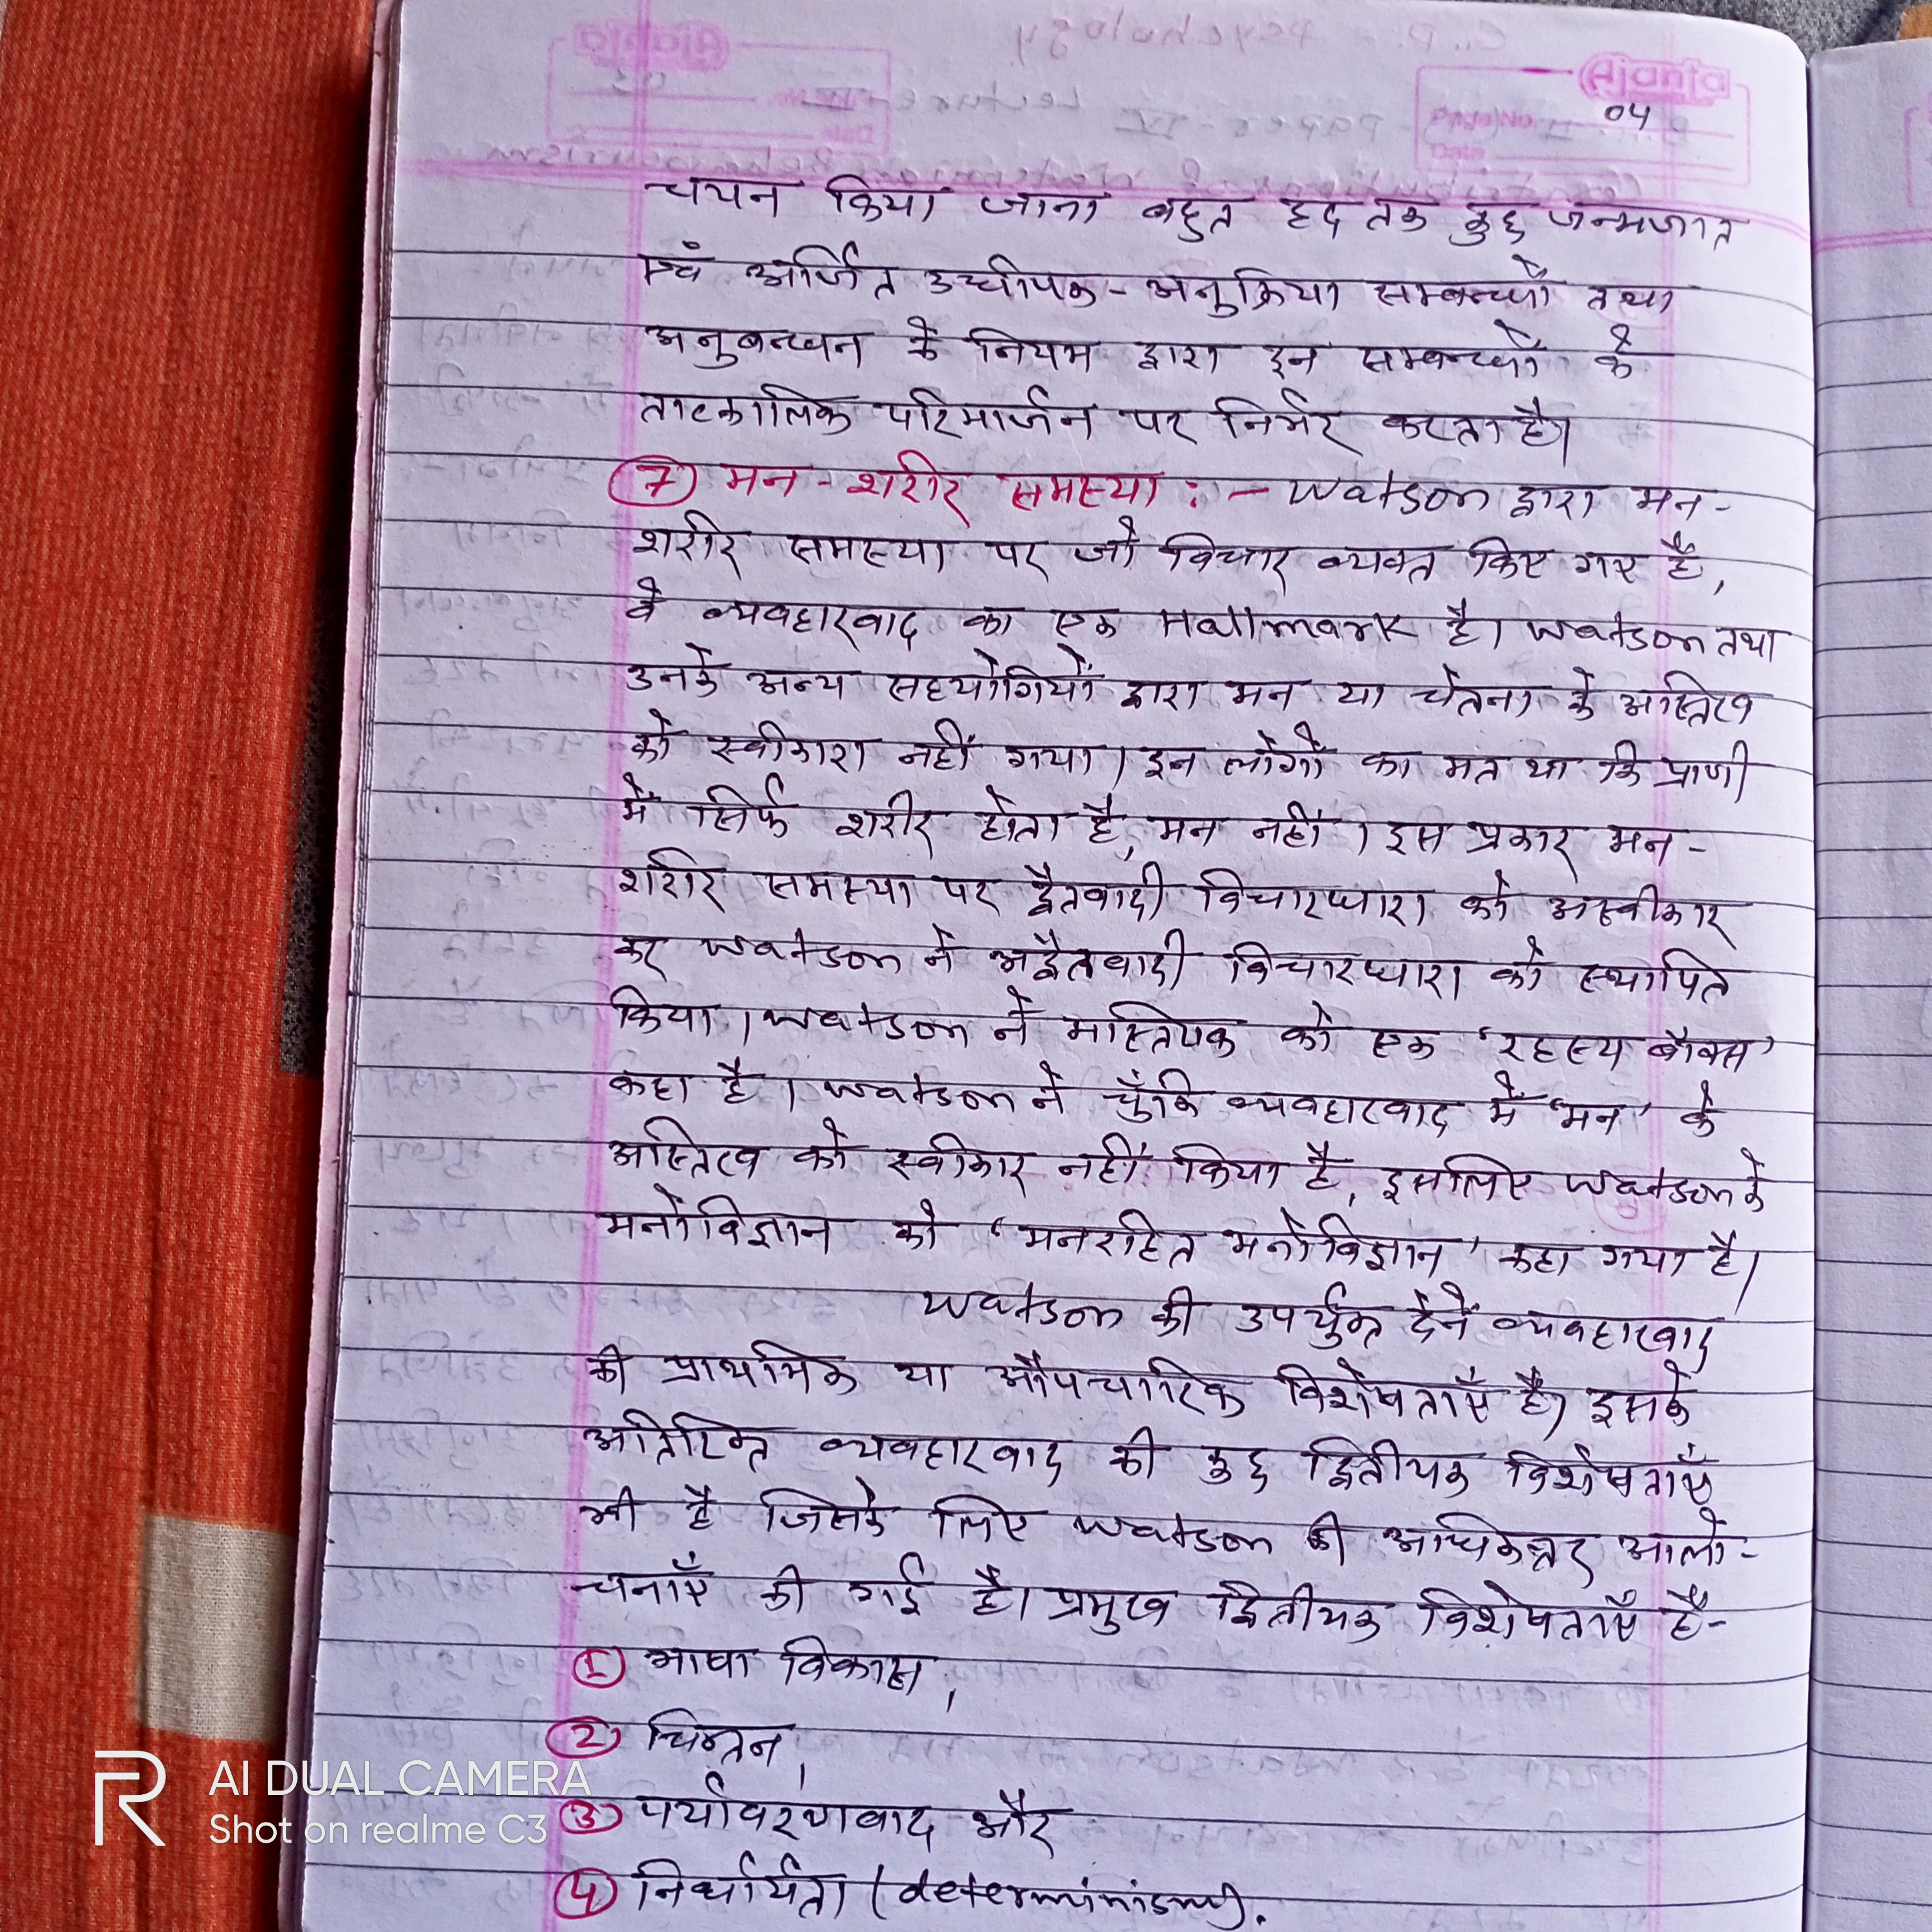 Ajanta
04
चयन किया जाना बहुत हद तक कुछ जन्मजात
एवं अर्जित उद्दीपक-अनुक्रिया सम्बन्धों तथा
अनुबन्धन के नियम द्वारा इन सम्बन्धों के
तात्कालिक परिमार्जन पर निर्भर करता है।
7 मन-शरीर समस्या :- Watson द्वारा मन-
शरीर समस्या पर जो विचार व्यक्त किए गए हैं,
वे व्यवहारवाद का एक Hallmark है। Watson तथा
उनके अन्य सहयोगियों द्वारा मन या चेतना के अस्तित्व
को स्वीकारा नहीं गया। इन लोगों का मत था कि प्राणी
में सिर्फ शरीर होता है, मन नहीं। इस प्रकार मन-
शरीर समस्या पर द्वैतवादी विचारधारा को अस्वीकार
कर Watson ने अद्वैतवादी विचारधारा को स्थापित
किया। Watson ने मस्तिष्क को एक 'रहस्य बॉक्स'
कहा है। Watson ने चूँकि व्यवहारवाद में 'मन' के
अस्तित्व को स्वीकार नहीं किया है, इसलिए Watson के
मनोविज्ञान को 'मनरहित मनोविज्ञान' कहा गया है।
Watson की उपर्युक्त देनें व्यवहारवाद
की प्राथमिक या औपचारिक विशेषताएँ हैं। इसके
अतिरिक्त व्यवहारवाद की कुछ द्वितीयक विशेषताएँ
भी है जिसके लिए Watson की अधिकत्तर आलो-
चनाएँ की गई है। प्रमुख द्वितीयक विशेषताएँ हैं-
1 भाषा विकास,
2 चिन्तन,
3 पर्यावरणवाद और
4 निर्धार्यता (determinism).
R AI DUAL CAMERA
Shot on realme C3